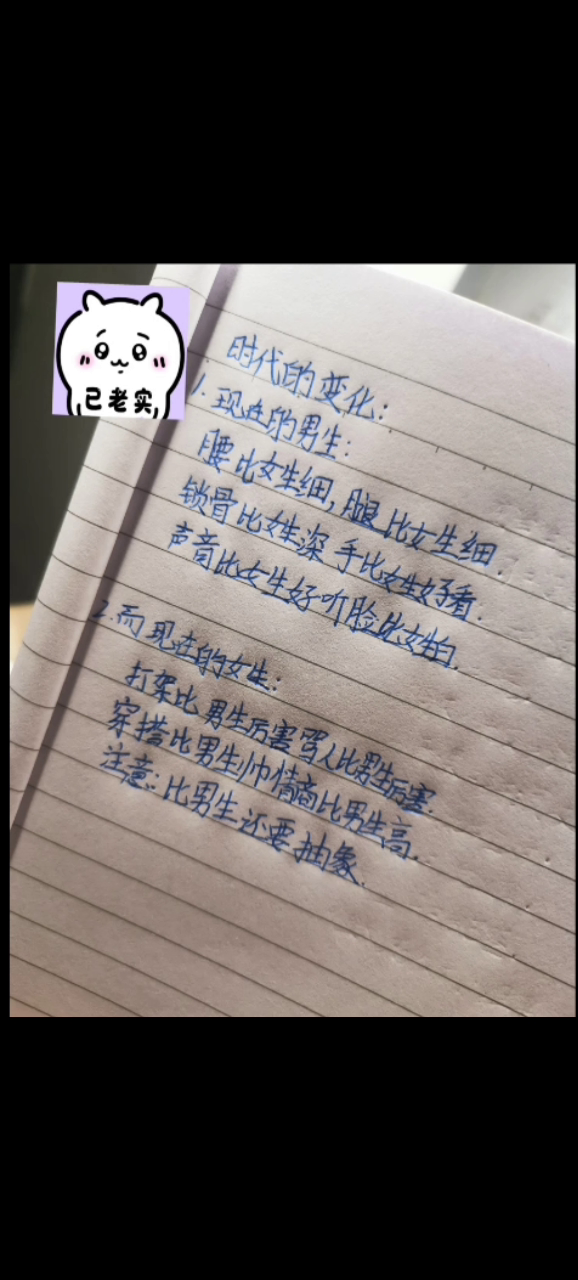 已老实
时代的变化:
1.现在的男生:
腰比女生细,腿比女生细.
锁骨比女生深 手比女生好看.
声音比女生好听脸比女生白.
2.而现在的女生:
打架比男生厉害骂人比男生厉害.
穿搭比男生帅情商比男生高.
注意:比男生还要抽象.